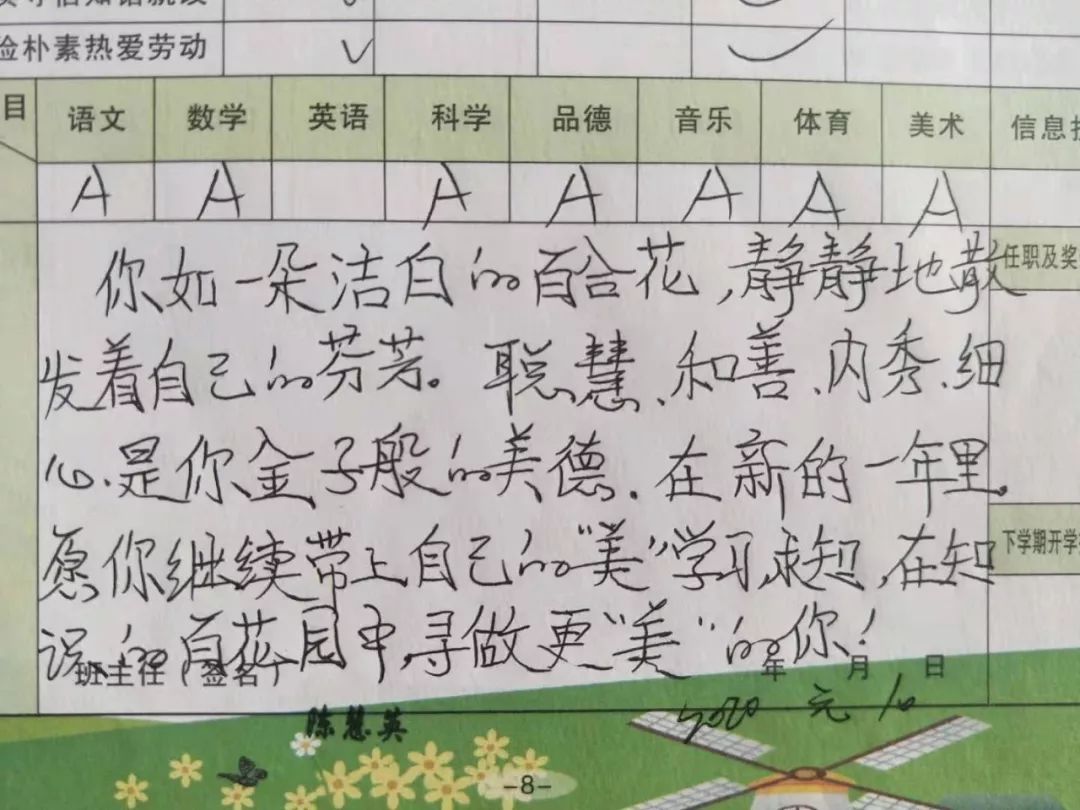 俭朴素热爱劳动 √
目 语文 数学 英语 科学 品德 音乐 体育 美术 信息技
A A A A A A A
任职及奖
你如一朵洁白的百合花,静静地散
发着自己的芬芳。聪慧、和善、内秀、细
心、是你金子般的美德.在新的一年里。
下学期开学
愿你继续带上自己的“美”学习,求知,在知
识的百花园中,寻做更“美”的你!
班主任(签名) 年 月 日
陈慧英 2020 元 10
-8-